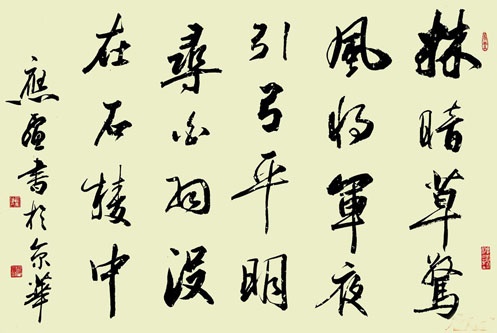 林暗草驚
風將軍夜
引弓平明
尋白羽沒
在石棱中
應宜書於京華